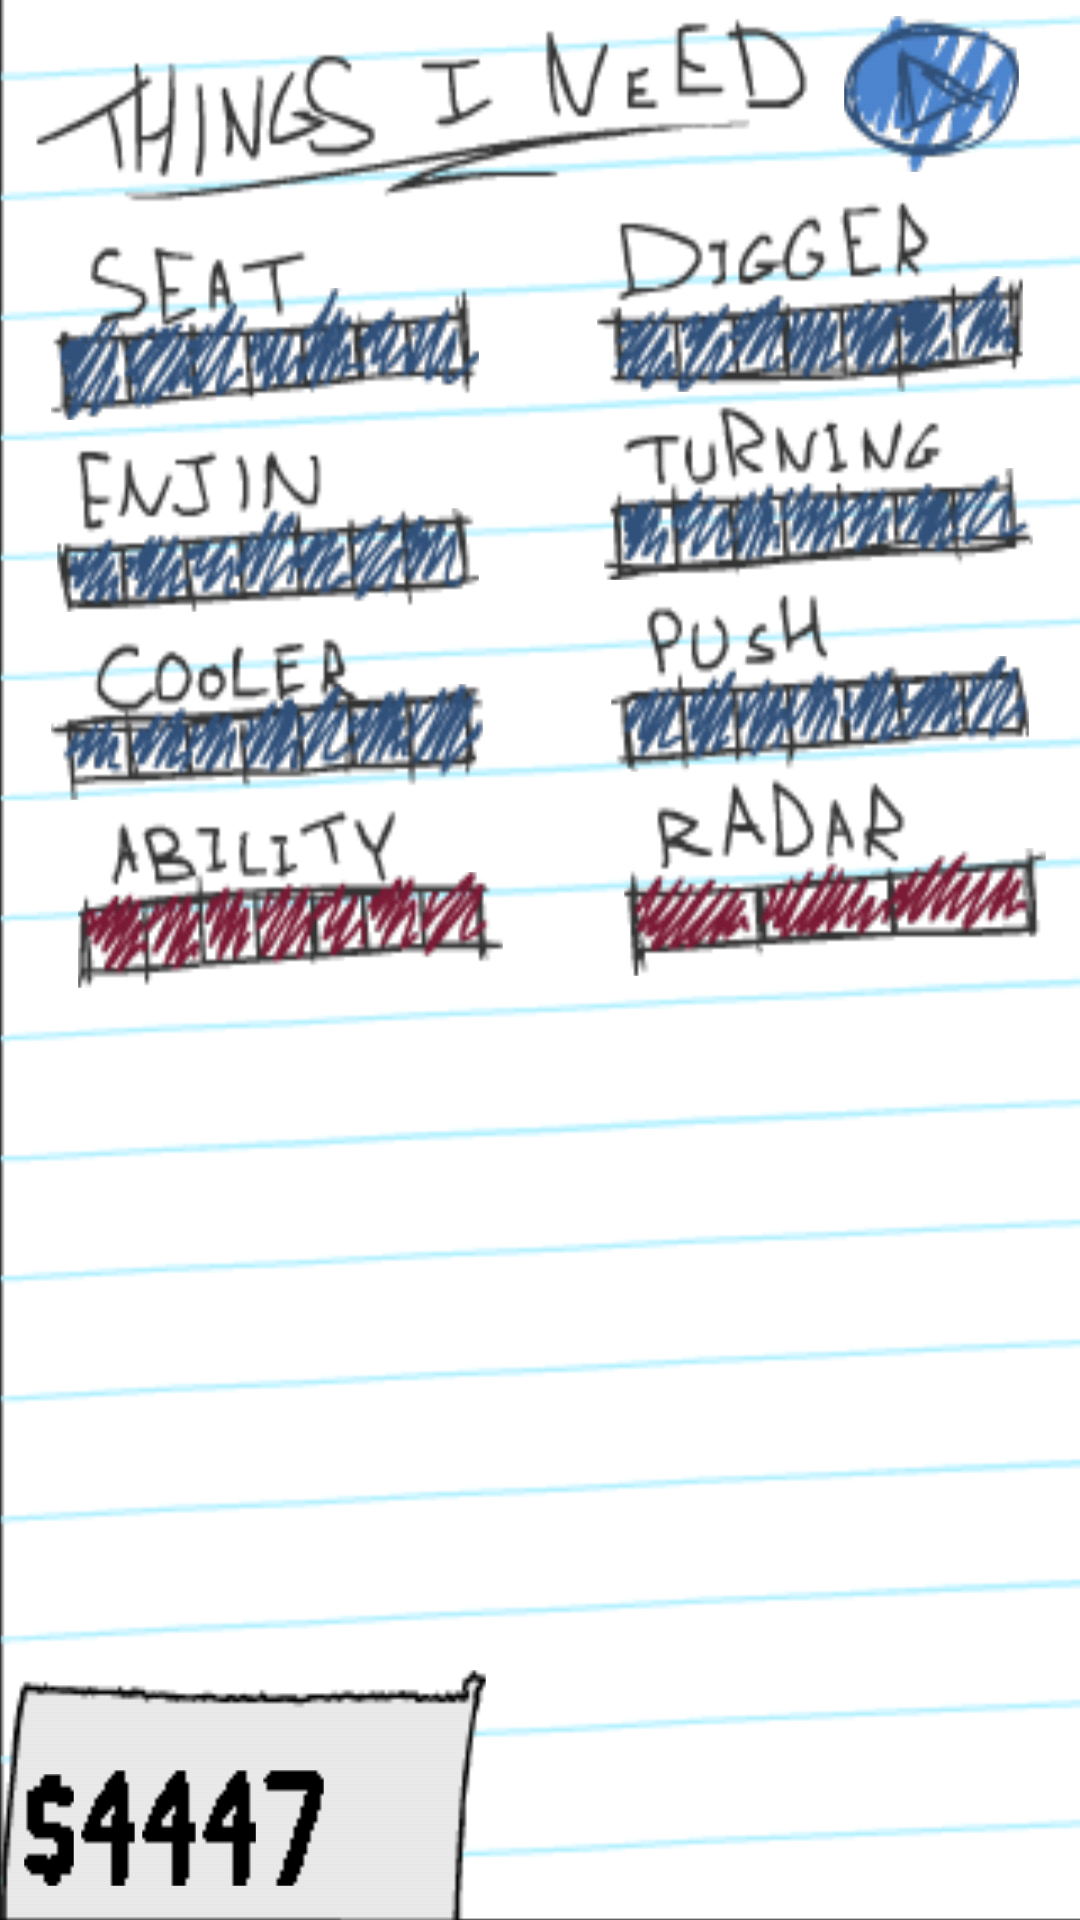 THINGS I NEED
SEAT DIGGER
ENJIN TURNING
COOLER PUSH
ABILITY RADAR
$4447